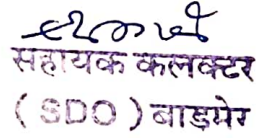 सहायक कलक्टर
( SDO ) बाडमेर